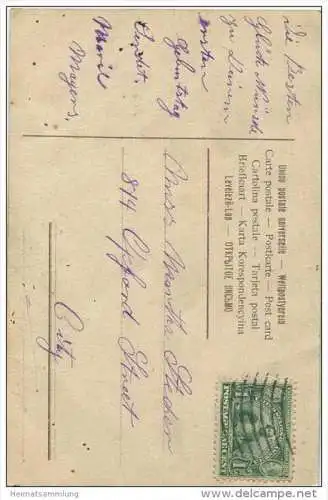 Die Besten
Glück Wünsche
zu Deinem
ersten
Geburtstag
Marie
Mayers,
Union postale universelle — Weltpostverein
Carte postale — Postcarte — Post card
Cartolina postale — Tarjeta postal
Briefkaart — Karta Korespondencyjna
Levelező-Lap — ОТКРЫТОЕ ПИСЬМО
Miss Martha
874 Street
City
Heimatsammlung